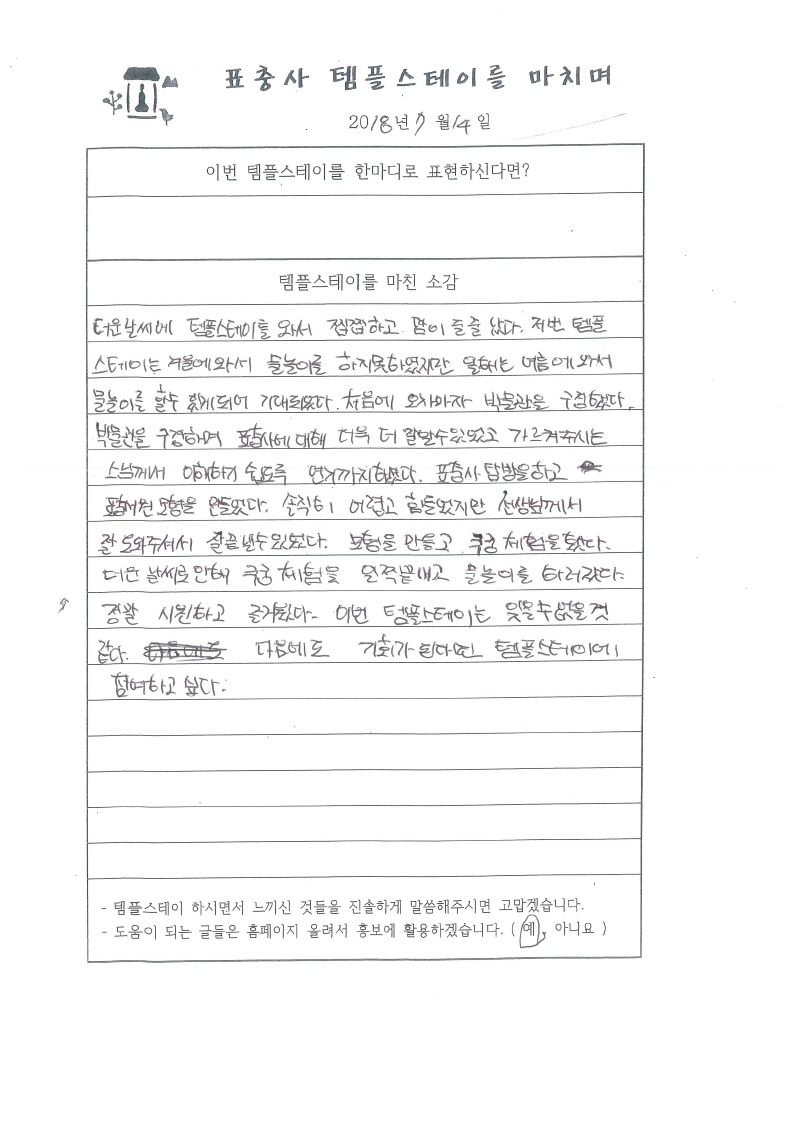 표충사 템플스테이를 마치며
2018년 7월 14일
이번 템플스테이를 한마디로 표현하신다면?
템플스테이를 마친 소감
더운날씨에 템플스테이를 와서 찝찝하고 땀이 줄줄 났다. 저번 템플
스테이는 겨울에와서 물놀이를 하지못하였지만 올해는 여름에 와서
물놀이를 할수 있게되어 기대되었다. 처음에 오자마자 박물관을 구경했다.
박물관을 구경하며 표충사에 대해 더욱 더 잘알수있었고 가르켜주시는
스님께서 이해하기 쉽도록 연기까지하셨다. 표충사 탐방을하고
표충서원 모형을 만들었다. 솔직히 어렵고 힘들었지만 선생님께서
잘 도와주셔서 잘끝낼수있었다. 모형을 만들고 국궁 체험을 했다.
더운 날씨로 인해 국궁 체험을 일찍끝내고 물놀이를 하러갔다.
정말 시원하고 즐거웠다. 이번 템플스테이는 잊을수없을것
같다. 다음에도 기회가 된다면 템플스테이에
참여하고 싶다.
- 템플스테이 하시면서 느끼신 것들을 진솔하게 말씀해주시면 고맙겠습니다.
- 도움이 되는 글들은 홈페이지 올려서 홍보에 활용하겠습니다. ( 예, 아니요 )